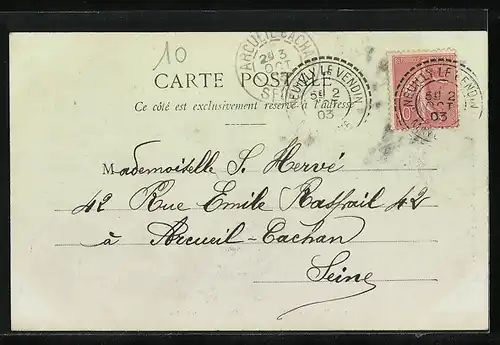 10
ARCUEIL-CACHAN
2E 3
OCT
SEINE
CARTE POSTALE
Ce côté est exclusivement réservé à l'adresse
NEUILLY LE VENDIN
5E 2
OCT
03
NEUILLY LE VENDIN
5E 2
OCT
03
Mademoiselle S. Hervé
42 Rue Emile Raspail 42
à Arcueil-Cachan
Seine